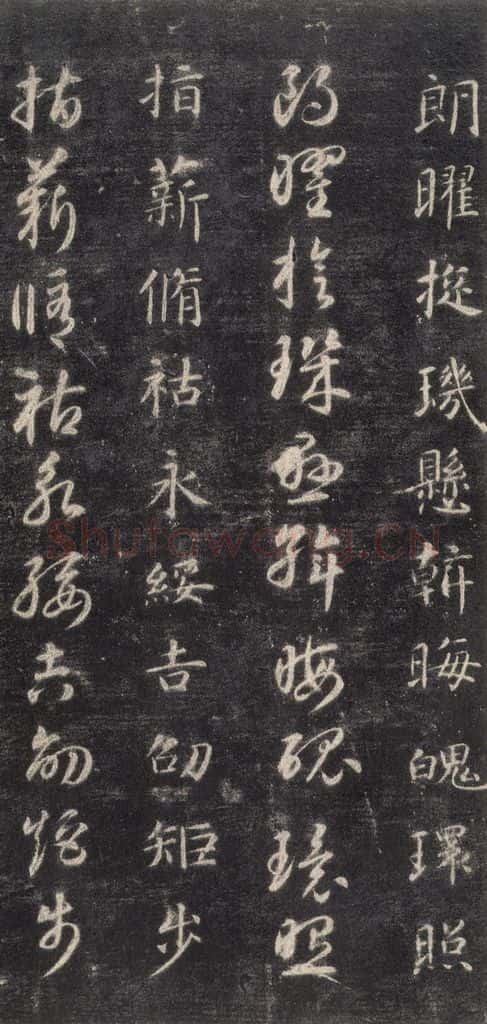 朗曜旋璣懸斡晦魄環照
朗曜旋璣懸斡晦魄環照
指薪脩祜永綏吉劭矩步
指薪脩祜永綏吉劭矩步
Shufawang.CN